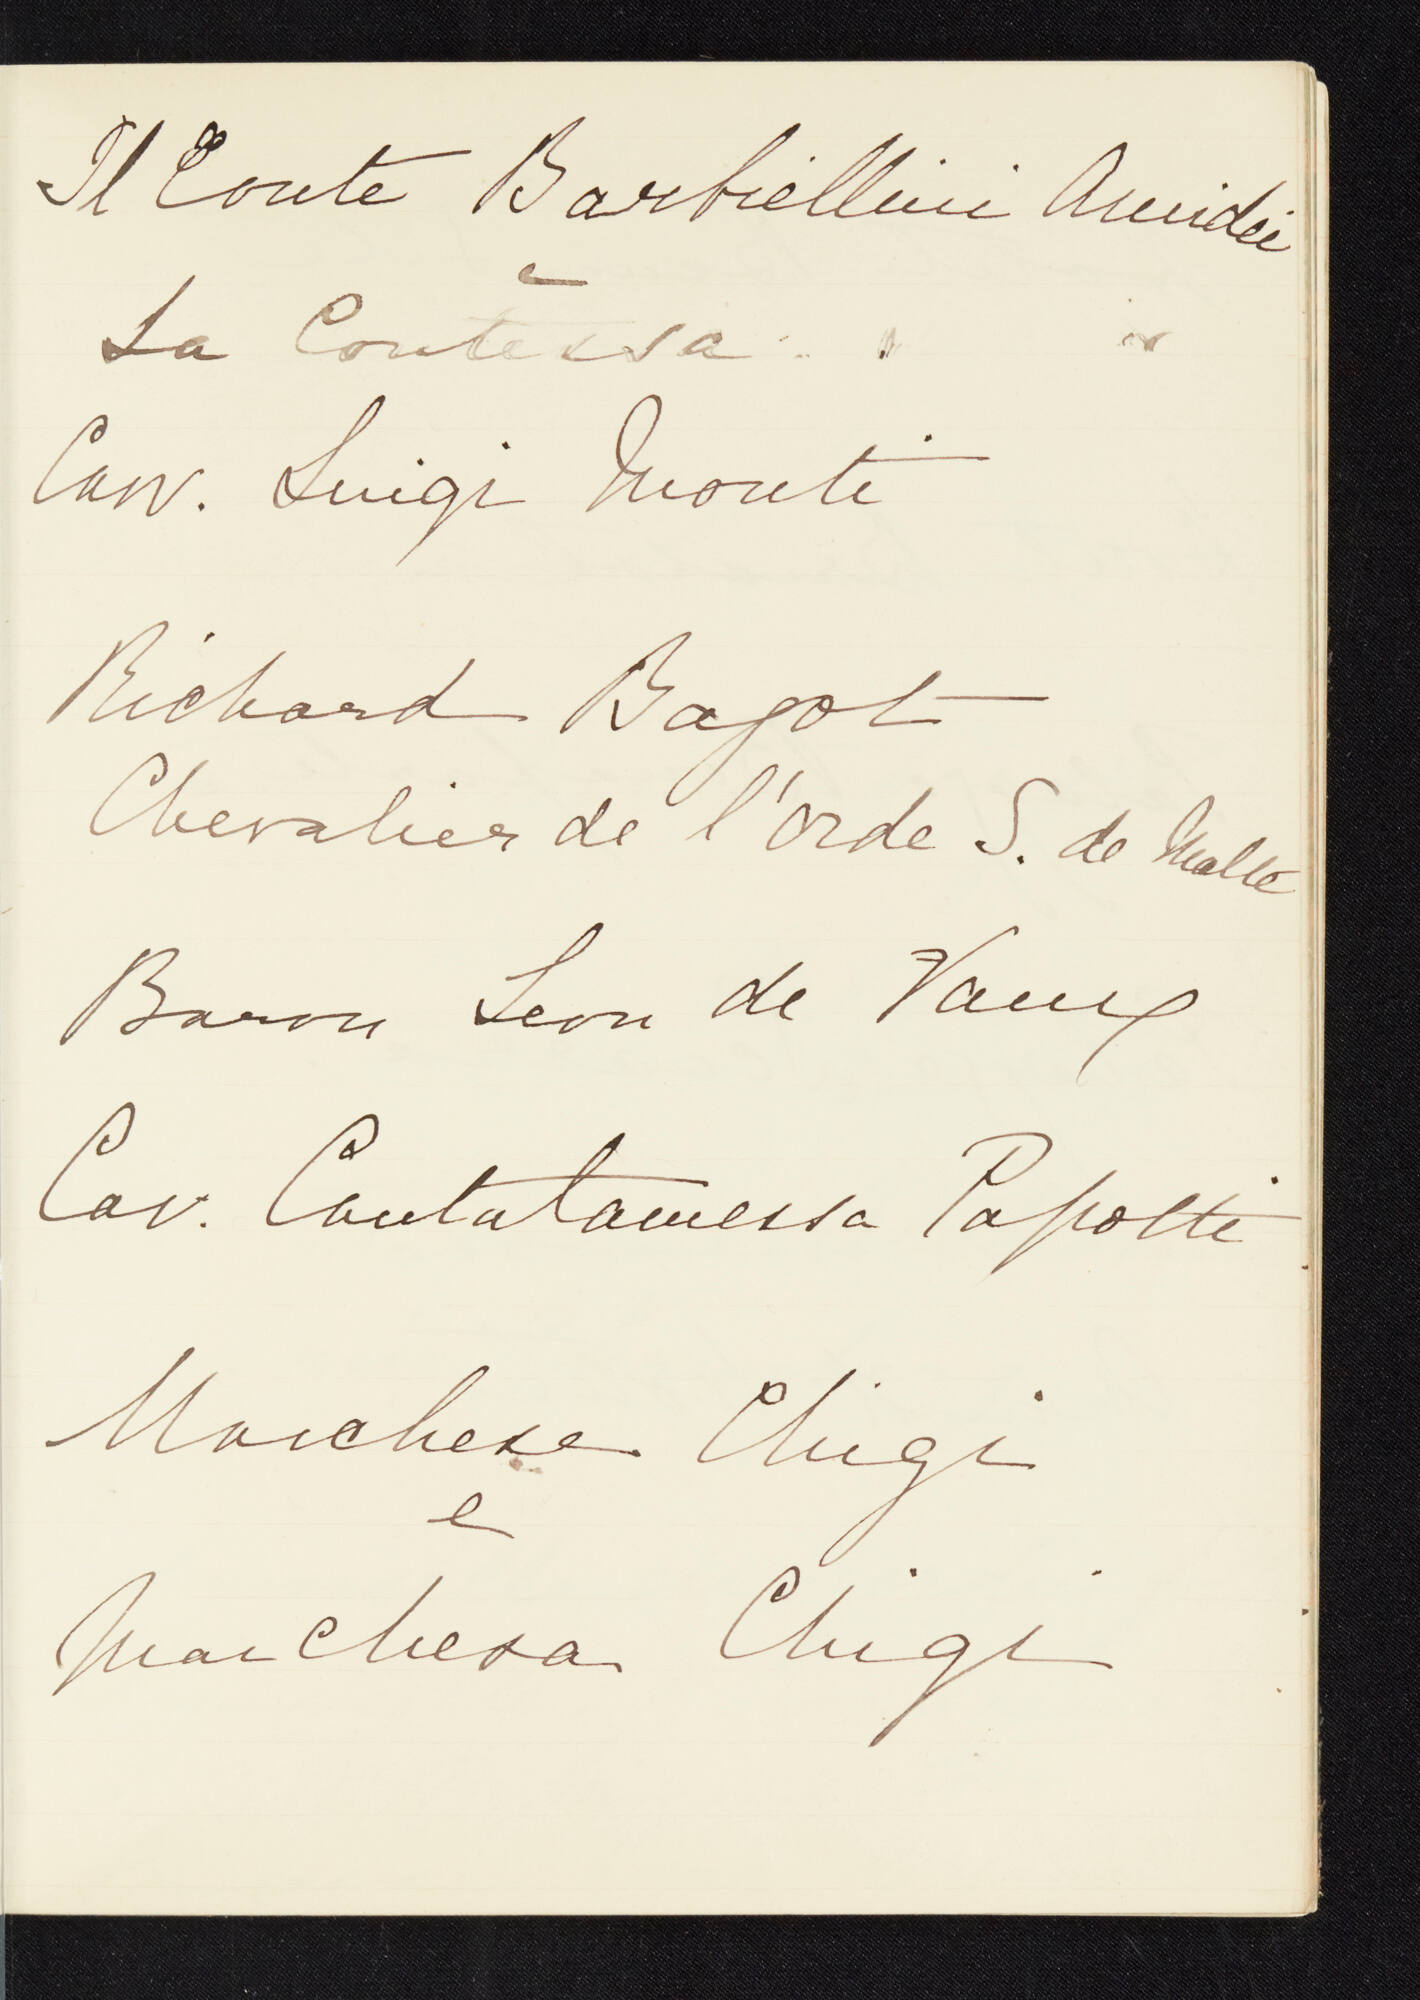 Il Conte Barbiellini Amidei
e
La Contessa " "
Cav. Luigi Monti
Richard Bagot
Chevalier de l'Orde S. de Malte
Baron Leon de Vaux
Cav. Contatamessa Papotti
Marchese Chigi
e
Marchesa Chigi